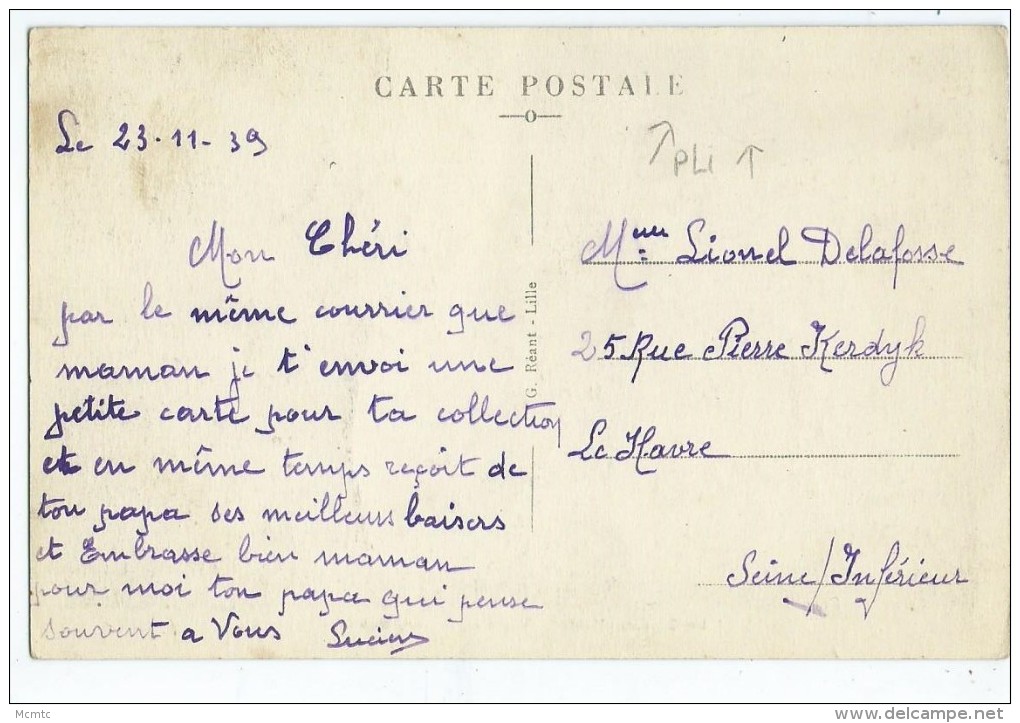 CARTE POSTALE
Le 23-11-39
PLI
Mon Chéri
par le même courrier que
maman je t'envoi une
petite carte pour ta collection
et en même temps reçoit de
ton papa ses meilleurs baisers
et Embrasse bien maman
pour moi ton papa qui pense
souvent a Vous Lucien
G. Réant - Lille
Lionel Delafosse
25 Rue Pierre Kerdyk
Le Havre
Seine/Inférieur
Mcmtc
delcampe.net